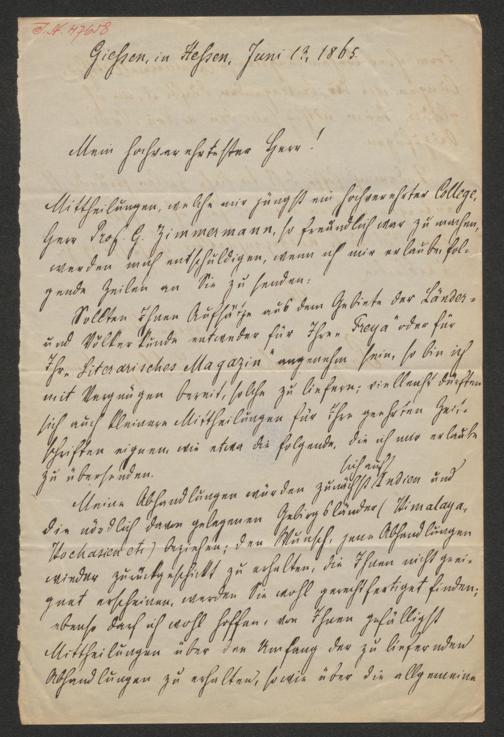 I. N. 47658
Giessen, in Hessen, Juni 13, 1865.
Mein hochverehrtester Herr!
Mittheilungen, welche mir jüngst ein hochverehrter College,
Herr Prof. G. Zimmermann, so freundlich war zu machen,
werden mich entschuldigen, wenn ich mir erlaube fol-
gende Zeilen an Sie zu senden:
Sollten Ihnen Aufsätze aus dem Gebiete der Länder-
und Völkerkunde entweder für Ihre „Freya" oder für
Ihr „Literarisches Magazin" angenehm sein, so bin ich
mit Vergnügen bereit, solche zu liefern; vielleicht dürften
sich auch kleinere Mittheilungen für Ihre geehrten Zeit-
schriften eignen, wie etwa die folgende, die ich mir erlaube
zu übersenden.
Meine Abhandlungen würden sich auf zunächst Indien und
die nördlich davon gelegenen Gebirgsländer (Himalaya,
Hochasien etc) beziehen; den Wunsch, jene Abhandlungen
wieder zurückgeschickt zu erhalten, die Ihnen nicht geei-
gnet erscheinen, werden Sie wohl gerechtfertiget finden;
ebenso darf ich wohl hoffen, von Ihnen gefälligst
Mittheilungen über den Umfang der zu liefernden
Abhandlungen zu erhalten, sowie über die allgemeine